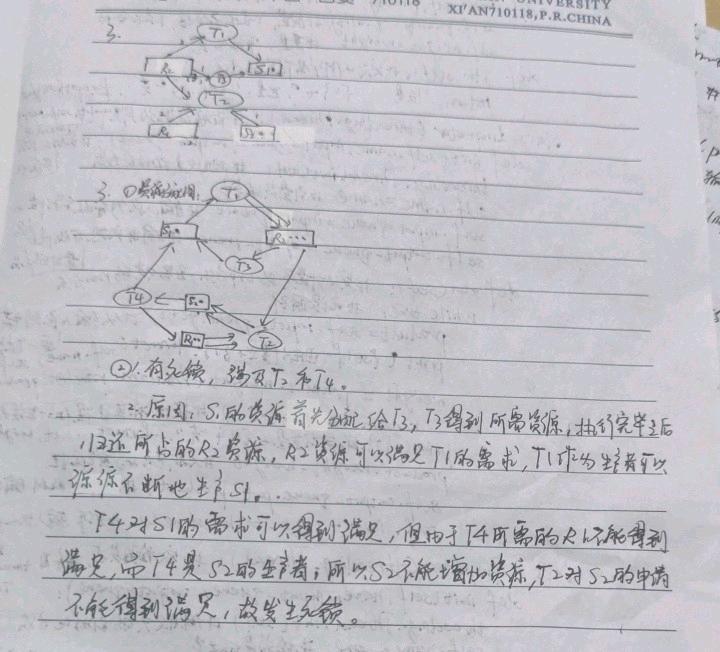 UNIVERSITY
710118
XI'AN710118,P.R.CHINA
3.
T1
R2
S1
T3
T2
R1
S2
3. ①资源分配图:
T1
S1
R2
T3
T4
S2
R1
T2
② 1. 有死锁,涉及T2和T4。
2. 原因:S1的资源首先分配给T3,T3得到所需资源,执行完毕之后
,归还所占的R2资源,R2资源可以满足T1的需求,T1作为生产者可以
源源不断地生产S1。
T4对S1的需求可以得到满足,但由于T4所需的R1不能得到
满足,而T4是S2的生产者,所以S2不能增加资源,T2对S2的申请
不能得到满足,故发生死锁。